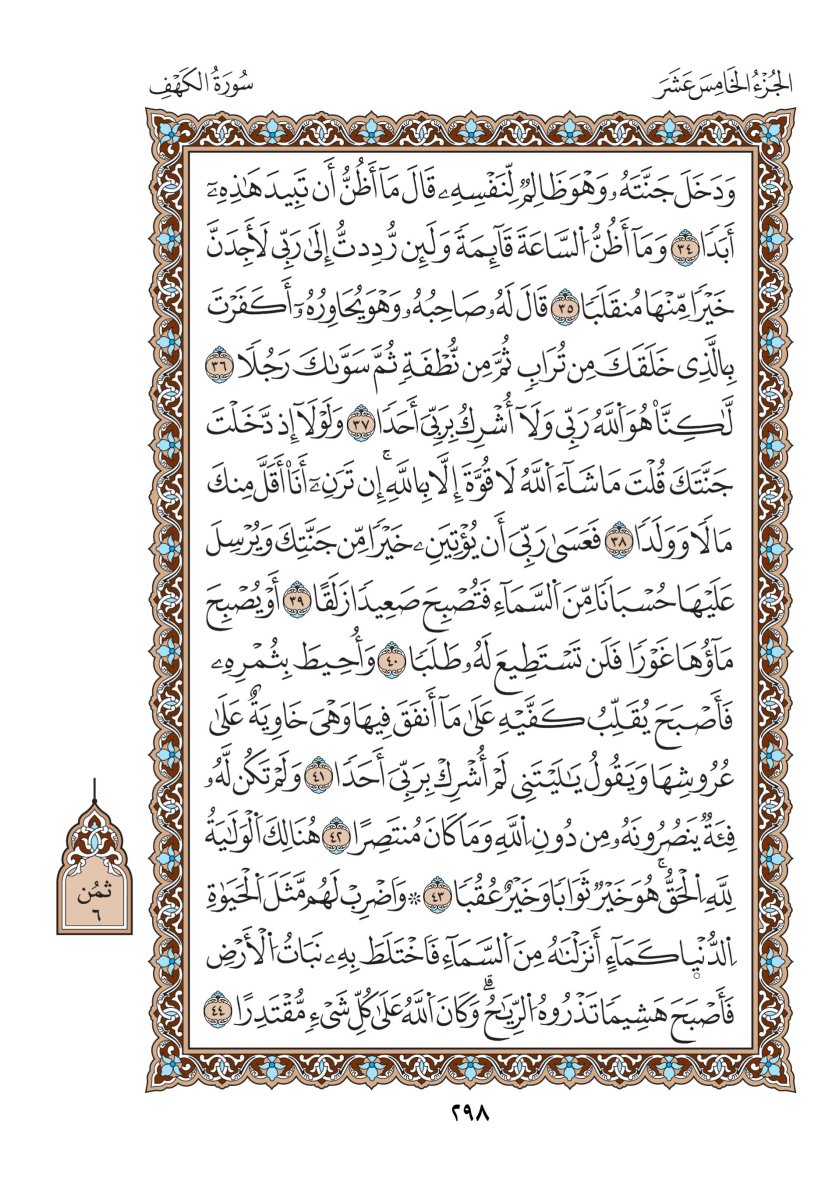 الجُزْءُ الخَامِسَ عَشَرَ
سُورَةُ الكَهْفِ
وَدَخَلَ جَنَّتَهُۥ وَهْوَ ظَالِمٞ لِّنَفْسِهِۦ قَالَ مَآ أَظُنُّ أَن تَبِيدَ هَٰذِهِۦٓ
أَبَدٗا ٣٤ وَمَآ أَظُنُّ اُ۬لسَّاعَةَ قَآئِمَةٗ وَلَئِن رُّدِدتُّ إِلَىٰ رَبِّي لَأَجِدَنَّ
خَيْرٗا مِّنْهَا مُنقَلَبٗا ٣٥ قَالَ لَهُۥ صَاحِبُهُۥ وَهْوَ يُحَاوِرُهُۥٓ أَكَفَرْتَ
بِالَّذِي خَلَقَكَ مِن تُرَابٖ ثُمَّ مِن نُّطْفَةٖ ثُمَّ سَوَّىٰكَ رَجُلٗا ٣٦
لَّٰكِنَّا۠ هُوَ اَ۬للَّهُ رَبِّي وَلَآ أُشْرِكُ بِرَبِّيَ أَحَدٗا ٣٧ وَلَوْلَآ إِذ دَّخَلْتَ
جَنَّتَكَ قُلْتَ مَا شَآءَ اَ۬للَّهُ لَا قُوَّةَ إِلَّا بِاللَّهِۚ إِن تَرَنِۦٓ أَنَا۠ أَقَلَّ مِنكَ
مَالٗا وَوَلَدٗا ٣٨ فَعَسَىٰ رَبِّيَ أَن يُؤْتِيَنِۦ خَيْرٗا مِّن جَنَّتِكَ وَيُرْسِلَ
عَلَيْهَا حُسْبَانٗا مِّنَ اَ۬لسَّمَآءِ فَتُصْبِحَ صَعِيدٗا زَلَقًا ٣٩ أَوْ يُصْبِحَ
مَآؤُهَا غَوْرٗا فَلَن تَسْتَطِيعَ لَهُۥ طَلَبٗا ٤٠ وَأُحِيطَ بِثُمْرِهِۦ
فَأَصْبَحَ يُقَلِّبُ كَفَّيْهِ عَلَىٰ مَآ أَنفَقَ فِيهَا وَهْيَ خَاوِيَةٌ عَلَىٰ
عُرُوشِهَا وَيَقُولُ يَٰلَيْتَنِي لَمْ أُشْرِكْ بِرَبِّيَ أَحَدٗا ٤١ وَلَمْ تَكُن لَّهُۥ
فِئَةٞ يَنصُرُونَهُۥ مِن دُونِ اِ۬للَّهِ وَمَا كَانَ مُنتَصِرًا ٤٢ هُنَالِكَ اَ۬لْوَلَٰيَةُ
لِلَّهِ اِ۬لْحَقُّۚ هُوَ خَيْرٞ ثَوَابٗا وَخَيْرٌ عُقُبٗا ٤٣ ۞ وَاَضْرِبْ لَهُم مَّثَلَ اَ۬لْحَيَوٰةِ
اِ۬لدُّنْيَا كَمَآءٍ أَنزَلْنَٰهُ مِنَ اَ۬لسَّمَآءِ فَاَخْتَلَطَ بِهِۦ نَبَاتُ اُ۬لْأَرْضِ
فَأَصْبَحَ هَشِيمٗا تَذْرُوهُ اُ۬لرِّيَٰحُۗ وَكَانَ اَ۬للَّهُ عَلَىٰ كُلِّ شَيْءٖ مُّقْتَدِرًا ٤٤
ثُمُن
٦
٢٩٨